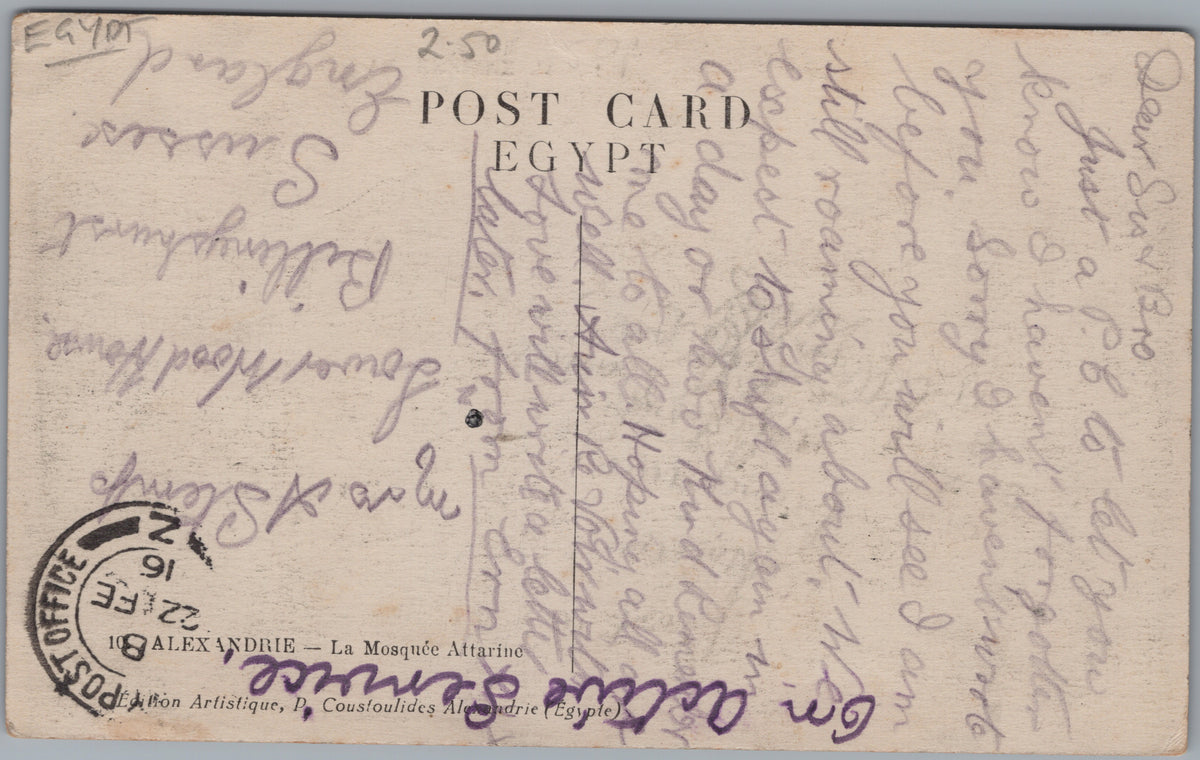 EGYPT
2.50
POST CARD
EGYPT
Dear Sis & Bro
Just a P.C to let you
know I haven't forgotten
you. Sorry I havent wrote
before you will see I am
still roaming about. We
expect to shift again in
a day or two Kind Remember
me to all. Hoping all are
well
love will write a letter
later. From Ern
On Active Service.
Mrs A Stemp
Lower Wood House.
Billingshurst
Sussex
England
POST OFFICE
Z
16
22 FE
B
10 ALEXANDRIE — La Mosquée Attarine
Edition Artistique, P. Coustoulides Alexandrie (Egypte)